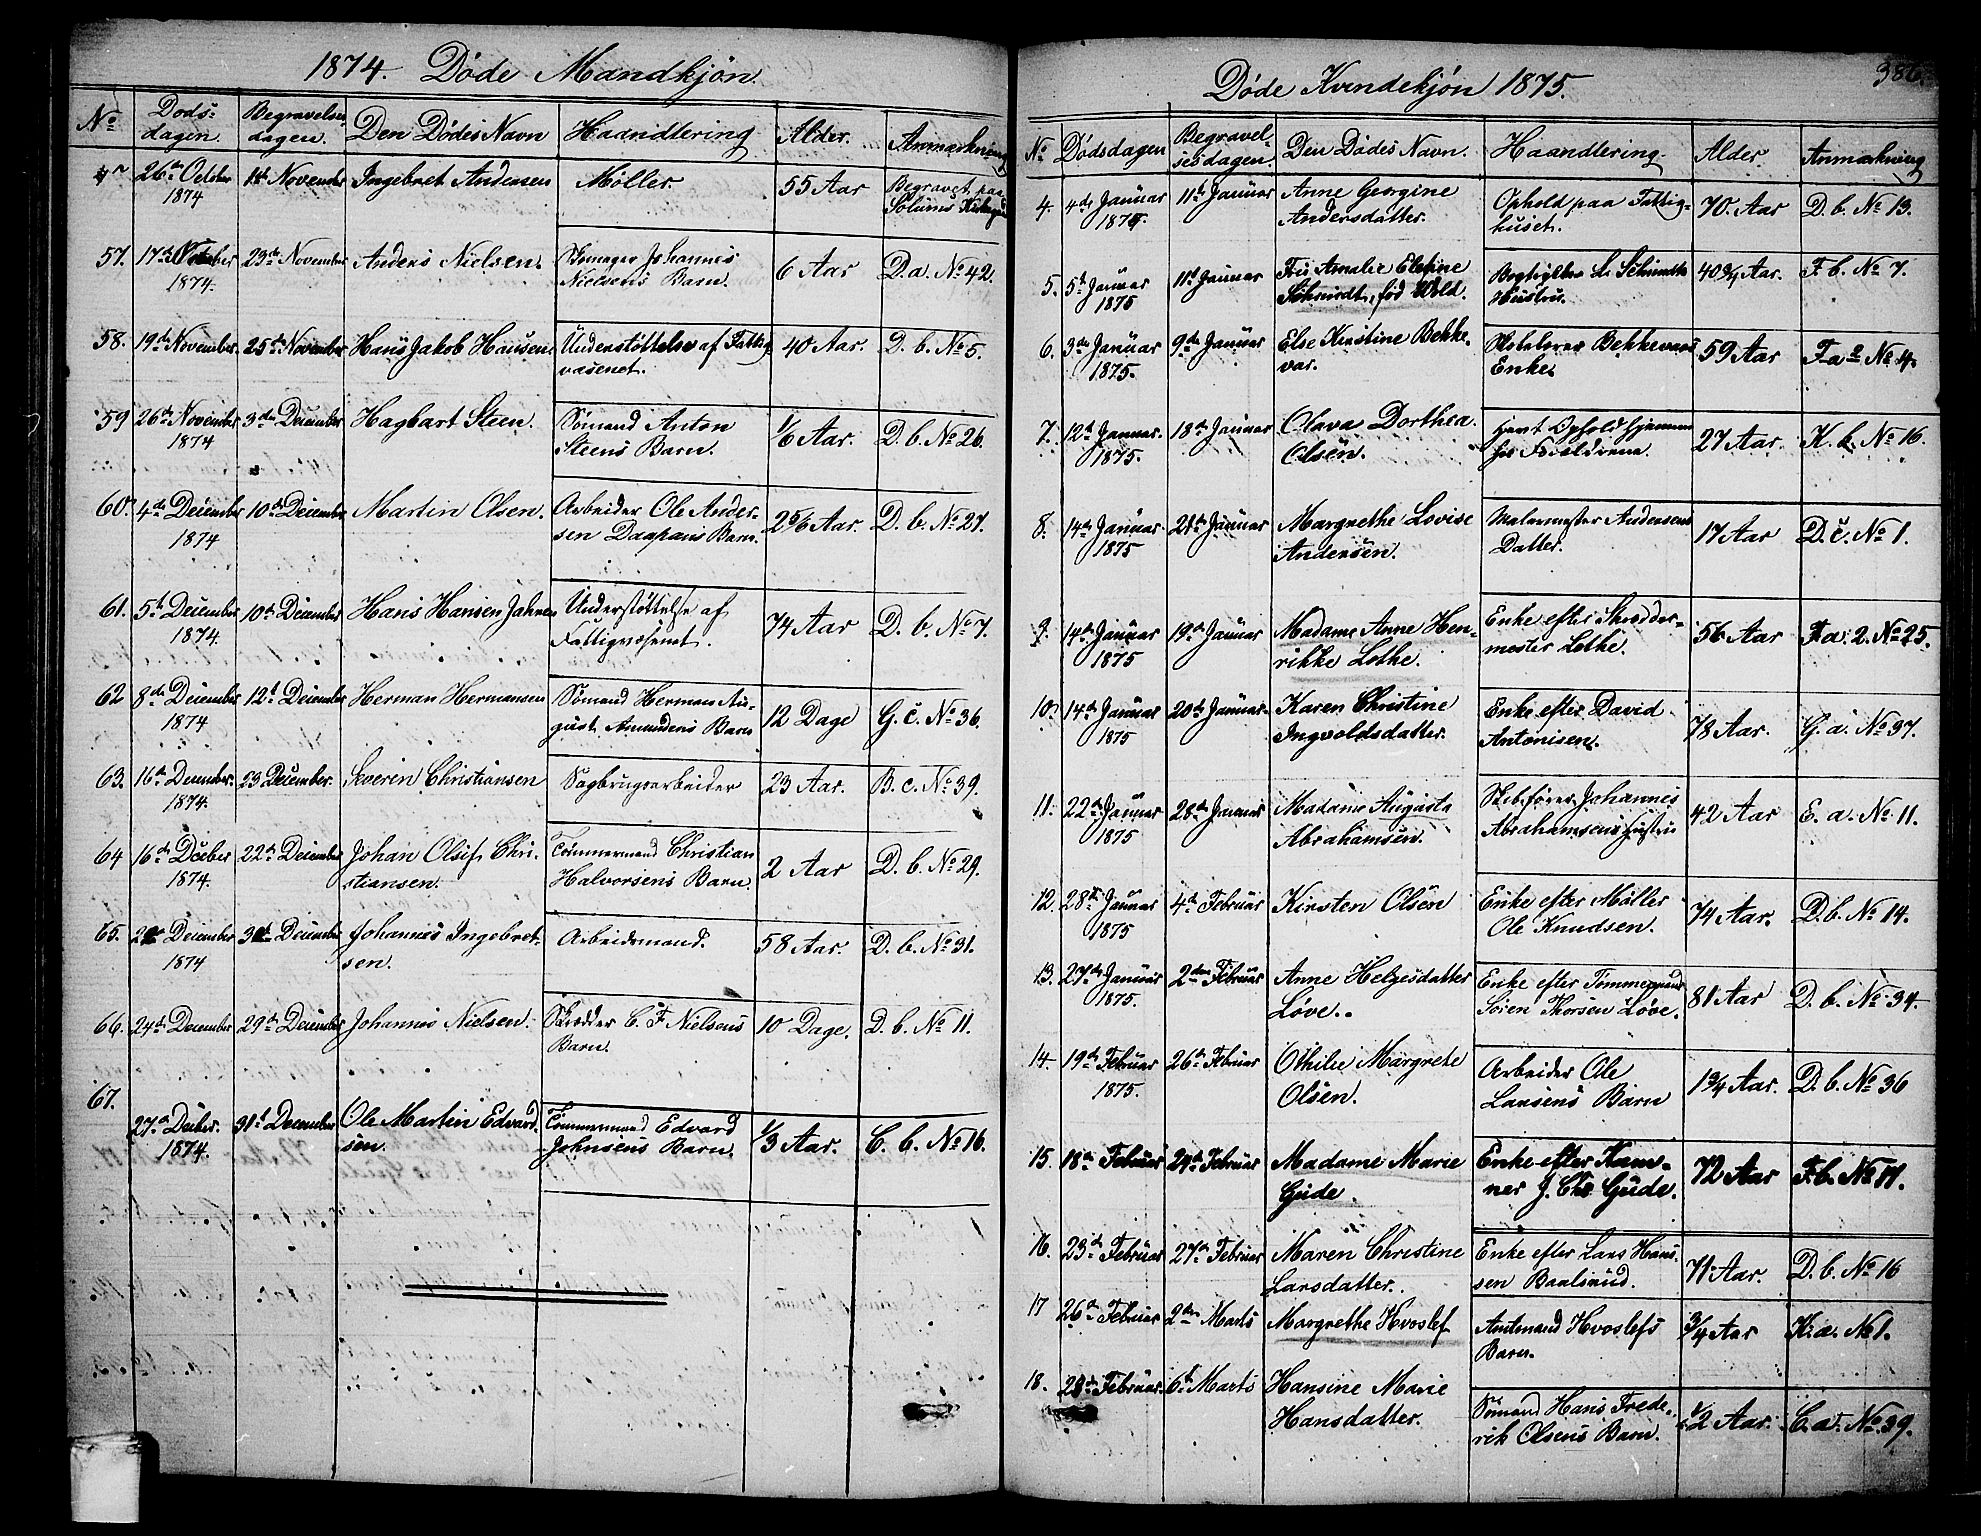 1874. Døde Mandkjøn
No Døds-dagen. Begravelses dagen. Den Dødes Navn Haandtering Alder. Anmærkning
26de October 1ste November Ingebret Andersen Møller. 55 Aar Begravet paa
1874 Solums
57. 17de 23de November Anders Nielsen. Johannes 6 Aar D. a. No 42.
1874. Nielsens Barn.
58. 19de November 25de November Hans Jakob Hansen. Understøttelse af Fattig 40 Aar. D. b. No 5.
væsenet.
59 26de November 3die December Hagbart Steen. Sømand Anton 1/6 Aar. D. b. No 26.
1874 Steens Barn.
60. 4de December 10de December Martin Olsen. Arbeider Ole Ander- 2 5/6 Aar. D. b. No 27.
1874 sen Barn.
61. 5te December 10de December Hans Hansen Understøttelse af 74 Aar D. b. No 7.
1874. Fattigvæsenet.
62 8de December 12te December Herman Hermansen Sømand Herman Au- 12 Dage G. c. No 36.
1874 gust Amundsens Barn
63. 16de December. 23 December. Severin Christiansen Sagbrugsarbeider 23 Aar. B. c. No 39.
1874.
64 16de Dceber 22de December Johan Chri- Tømmermand Christian 2 Aar D. b. No 29.
1874. stiansen. Halvorsens Barn.
65. December December Johannes Ingebret- Arbeidsmand. 58 Aar. D. b. No 31.
1874 sen.
66. 24de December 29de December Johannes Nielsen. Skrædder C. F. Nielsens 10 Dage. D. b. No 11.
Barn.
67.
27de Dceber. 31te December Ole Martin Edvard- Tømmermand Edvard 1/3 Aar. C. b. No 16.
1874. sen. Johnsens Barn.
386.
Døde Kvindekjøn 1875.
No Dødsdagen Begravel-sesdagen. Den Dødes Navn. Haandtering Alder Anmærkning
4. 4de Januar 11te Januar Anne Georgine Ophold paa Fattig- 70. Aar D. b. No 13.
Andersdatter. huset.
5. 5te Januar 11te Januar Amalie L. Schmidts 40 3/4 Aar. F. b. No 7.
1875 Schmidt, fød Wold. Hustru.
6. 3die Januar 9de Januar Else Kirstine Bekke- Bekkevars 59 Aar No 4.
1875. var. Enke.
7. 12te Januar. 18de Januar Olava Dorthea 27 Aar. K. b. No 16.
1875. Olsen. Forældrene
8. 14de Januar Januar Margrethe Lovise Malermester Andersens 17 Aar D. c. No 1.
1875 Andersen. Datter.
9. 14de Januar 19de Januar Madame Anne Hen- Enke efter Skrædder- 56 Aar F. a. 2. No 25.
1875 rikke Lothe. mester Lothe.
10. 14de Januar 20de Januar. Karen Christine Enke efter David 78 Aar. G. a. No 37.
1875 Ingvoldsdatter. Antonisen.
11. 22de Januar 28de Januar Madame Augusta Skibsfører Johannes 42 Aar E. a. No 11.
1875 Abrahamsen. Abrahamsens Hustru
12. 28de Januar 4de Februar Kirsten Olsen Enke efter Møller 74 Aar. D. b. No 14.
1875 Ole Knudsen.
13. 27de Januar 2den Februar Anne Helgesdatter Enke efter Tømmermand 81 Aar D. b. No 34.
1875. Løve. Søren Thorsen Løve.
14. 19de Februar 26de Februar Othilie Margrete Arbeider Ole 1 3/4 Aar. D. b. No 36
1875. Olsen. Larsens Barn
15. 18de Februar Februar Madame Marie Enke efter Kæm- 72 Aar F. b. No 11.
Gude. ner J. Chr. Gude.
16. 23de Februar 27de Februar Maren Christine Enke efter Lars Han- 71 Aar. D. b. No 16
Larsdatter. sen Baalsrud.
17 26de Februar 2den Marts Margrethe Hvoslef Amtmand Hvoslefs 3/4 Aar K. a. No 1.
Barn.
18. 28de Februar. 6te Marts Hansine Marie Sømand Hans Frede- 1/2 Aar. C. a. No. 39.
Hansdatter. rik Olsens Barn.